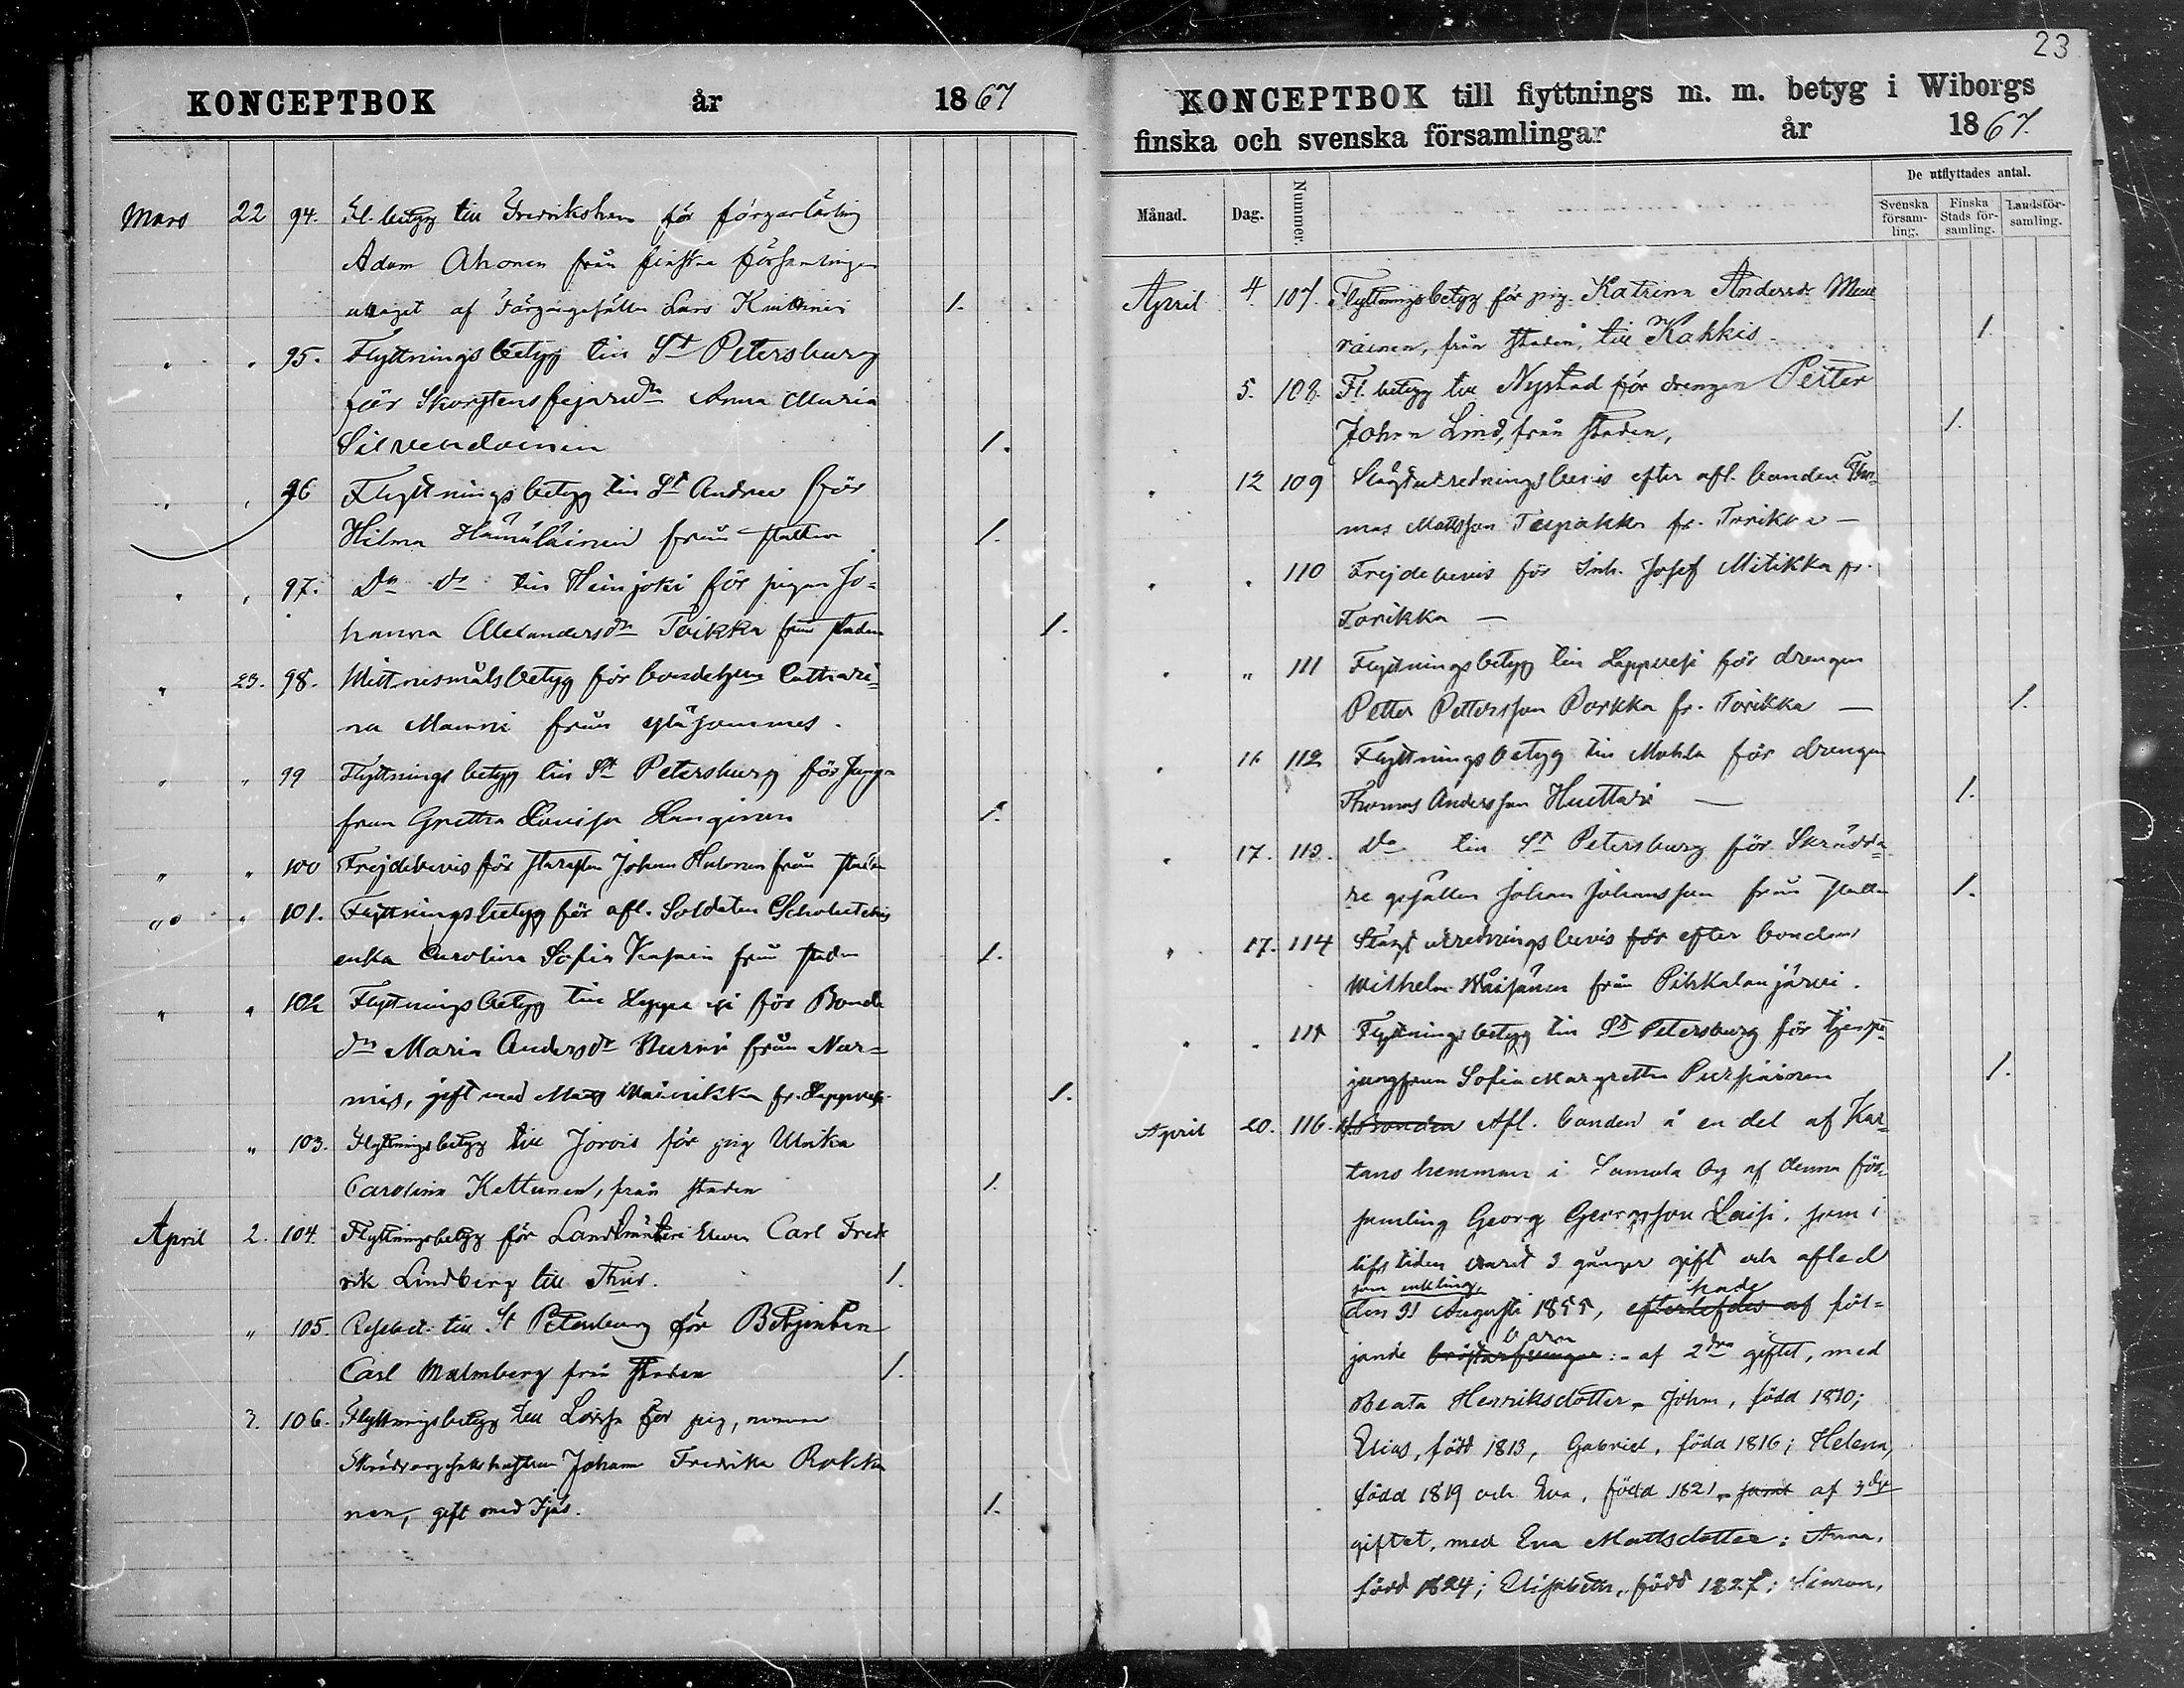 KONCEPTBOK år 1867
Mars 22 94. Fl. betyg till Fredrikshamn för färgarlärling
Adam Ahonen från finska församlingen
uttaget af Färgaregesällen Lars 1.
" " 95. Flyttningsbetyg till St Petersburg
för Skorstensfejaredr Anna Maria
Silvendoinen 1.
" " 96 Flyttningsbetyg till St Andree för
Hilma Hämäläinen från staden 1.
" " 97. Do do till Heinjoki för pigan Jo=
hanna Alexandersdr Toikka från staden 1.
" 23. 98. Wittnesmålsbetyg för bondehustrun Cathari=
na Manni från Yläsommes.
" " 99 Flyttningsbetyg till St Petersburg för Jung=
frun Gretha Lovisa 1.
" " 100 Frejdebevis för Johan Halonen från staden
" " 101. Flyttningsbetyg för afl. Soldaten
enka Carolina Sofia från staden 1.
" " 102 Flyttningsbetyg till Lappvesi för Bonde
dr Maria Andersdr Nurmi från Nur=
mis, gift med Mats Wainikka fr. Lappvesi 1.
" 103. Flyttningsbetyg till Jorois för pig Ulrika
Carolina Kettunen, från staden 1.
April 2. 104. Flyttningsbetyg för Landtmäteri Eleven Carl Fred
rik Lindberg till Thus. 1.
" 105. Resebet. till St Petersburg för Betjenten
Carl Malmberg från staden 1.
3. 106. Flyttningsbetyg till Lovisa för pig, numera
Skräddaregesällshustrun Johana Fredrika
nen, gift med Sjös. 1.
23
KONCEPTBOK till flyttnings m. m. betyg i Wiborgs
finska och svenska församlingar år 1867.
Månad. Dag. Nummer. De utflyttades antal.
Svenska församling. Finska Stads församling. Landsförsamling.
April 4 107. Flyttningsbetyg för pig. Katrina Andersdr Mu
rainen, från staden, till Kakkis 1.
5. 108. Fl. betyg till Nystad för drengen Petter
Johan Lind, från staden, 1.
" 12 109 Slägtutredningsbevis efter afl. bonden Tho=
mas Mattsson fr. Torikka —
" " 110 Frejdebevis för Inh. Josef Mitikka fr.
Torikka —
" " 111 Flyttningsbetyg till Lappvesi för drengen
Petter Pettersson Porkka fr. Torikka — 1.
" 16 112 Flyttningsbetyg till Mohla för drengen
Thomas Andersson Huttari — 1.
" 17. 113. Do till St Petersburg för Skrädda=
re gesällen Johan Johansson från staden 1.
" 17. 114 Slägtutredningsbevis för efter bonden
Wilhelm Wäisänen från Pihkalanjärvi.
" " 115 Flyttningsbetyg till St Petersburg för tjenste
jungfrun Sofia Margretha Pursiainen 1.
April 20. 116. Bonden Afl. bonden å en del af Kar=
tans hemman i Samola by af denna för=
samling Georg Georgsson Laisi, som i
lifstiden varit 3 gånger gift och afled
som enkling,
den 31 Augusti 1855, efterlefdes af hade föl=
jande bröstarfvingar barn: - af 2dra giftet, med
Beata Henriksdotter - Johan, född 1810;
Elias, född 1813, Gabriel, född 1816; Helena,
född 1819 och Eva, född 1821 - samt af 3dje
giftet, med Eva Mattsdotter: Anna,
född 1824; Elisabeth, född 1827; Simon,